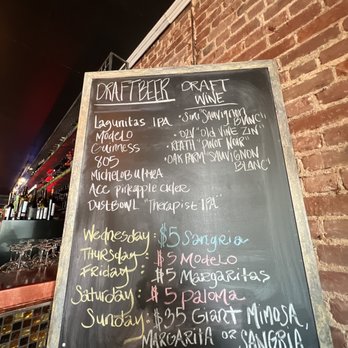 DRAFT BEER
DRAFT WINE
Lagunitas IPA
Modelo
Guinness
805
Michelob ultra
Ace pineapple cider
DUSTBOWL "Therapist IPA"
"Sauvignon BLANC"
"OLD VINE ZIN"
"PINOT NOIR"
"OAK FARM" SAUVIGNON BLANC
Wednesday: $5 Sangria
Thursday: $5 Modelo
Friday: $5 Margaritas
Saturday: $5 Paloma
Sunday: $25 Giant MIMOSA,
MARGARITA or SANGRIA